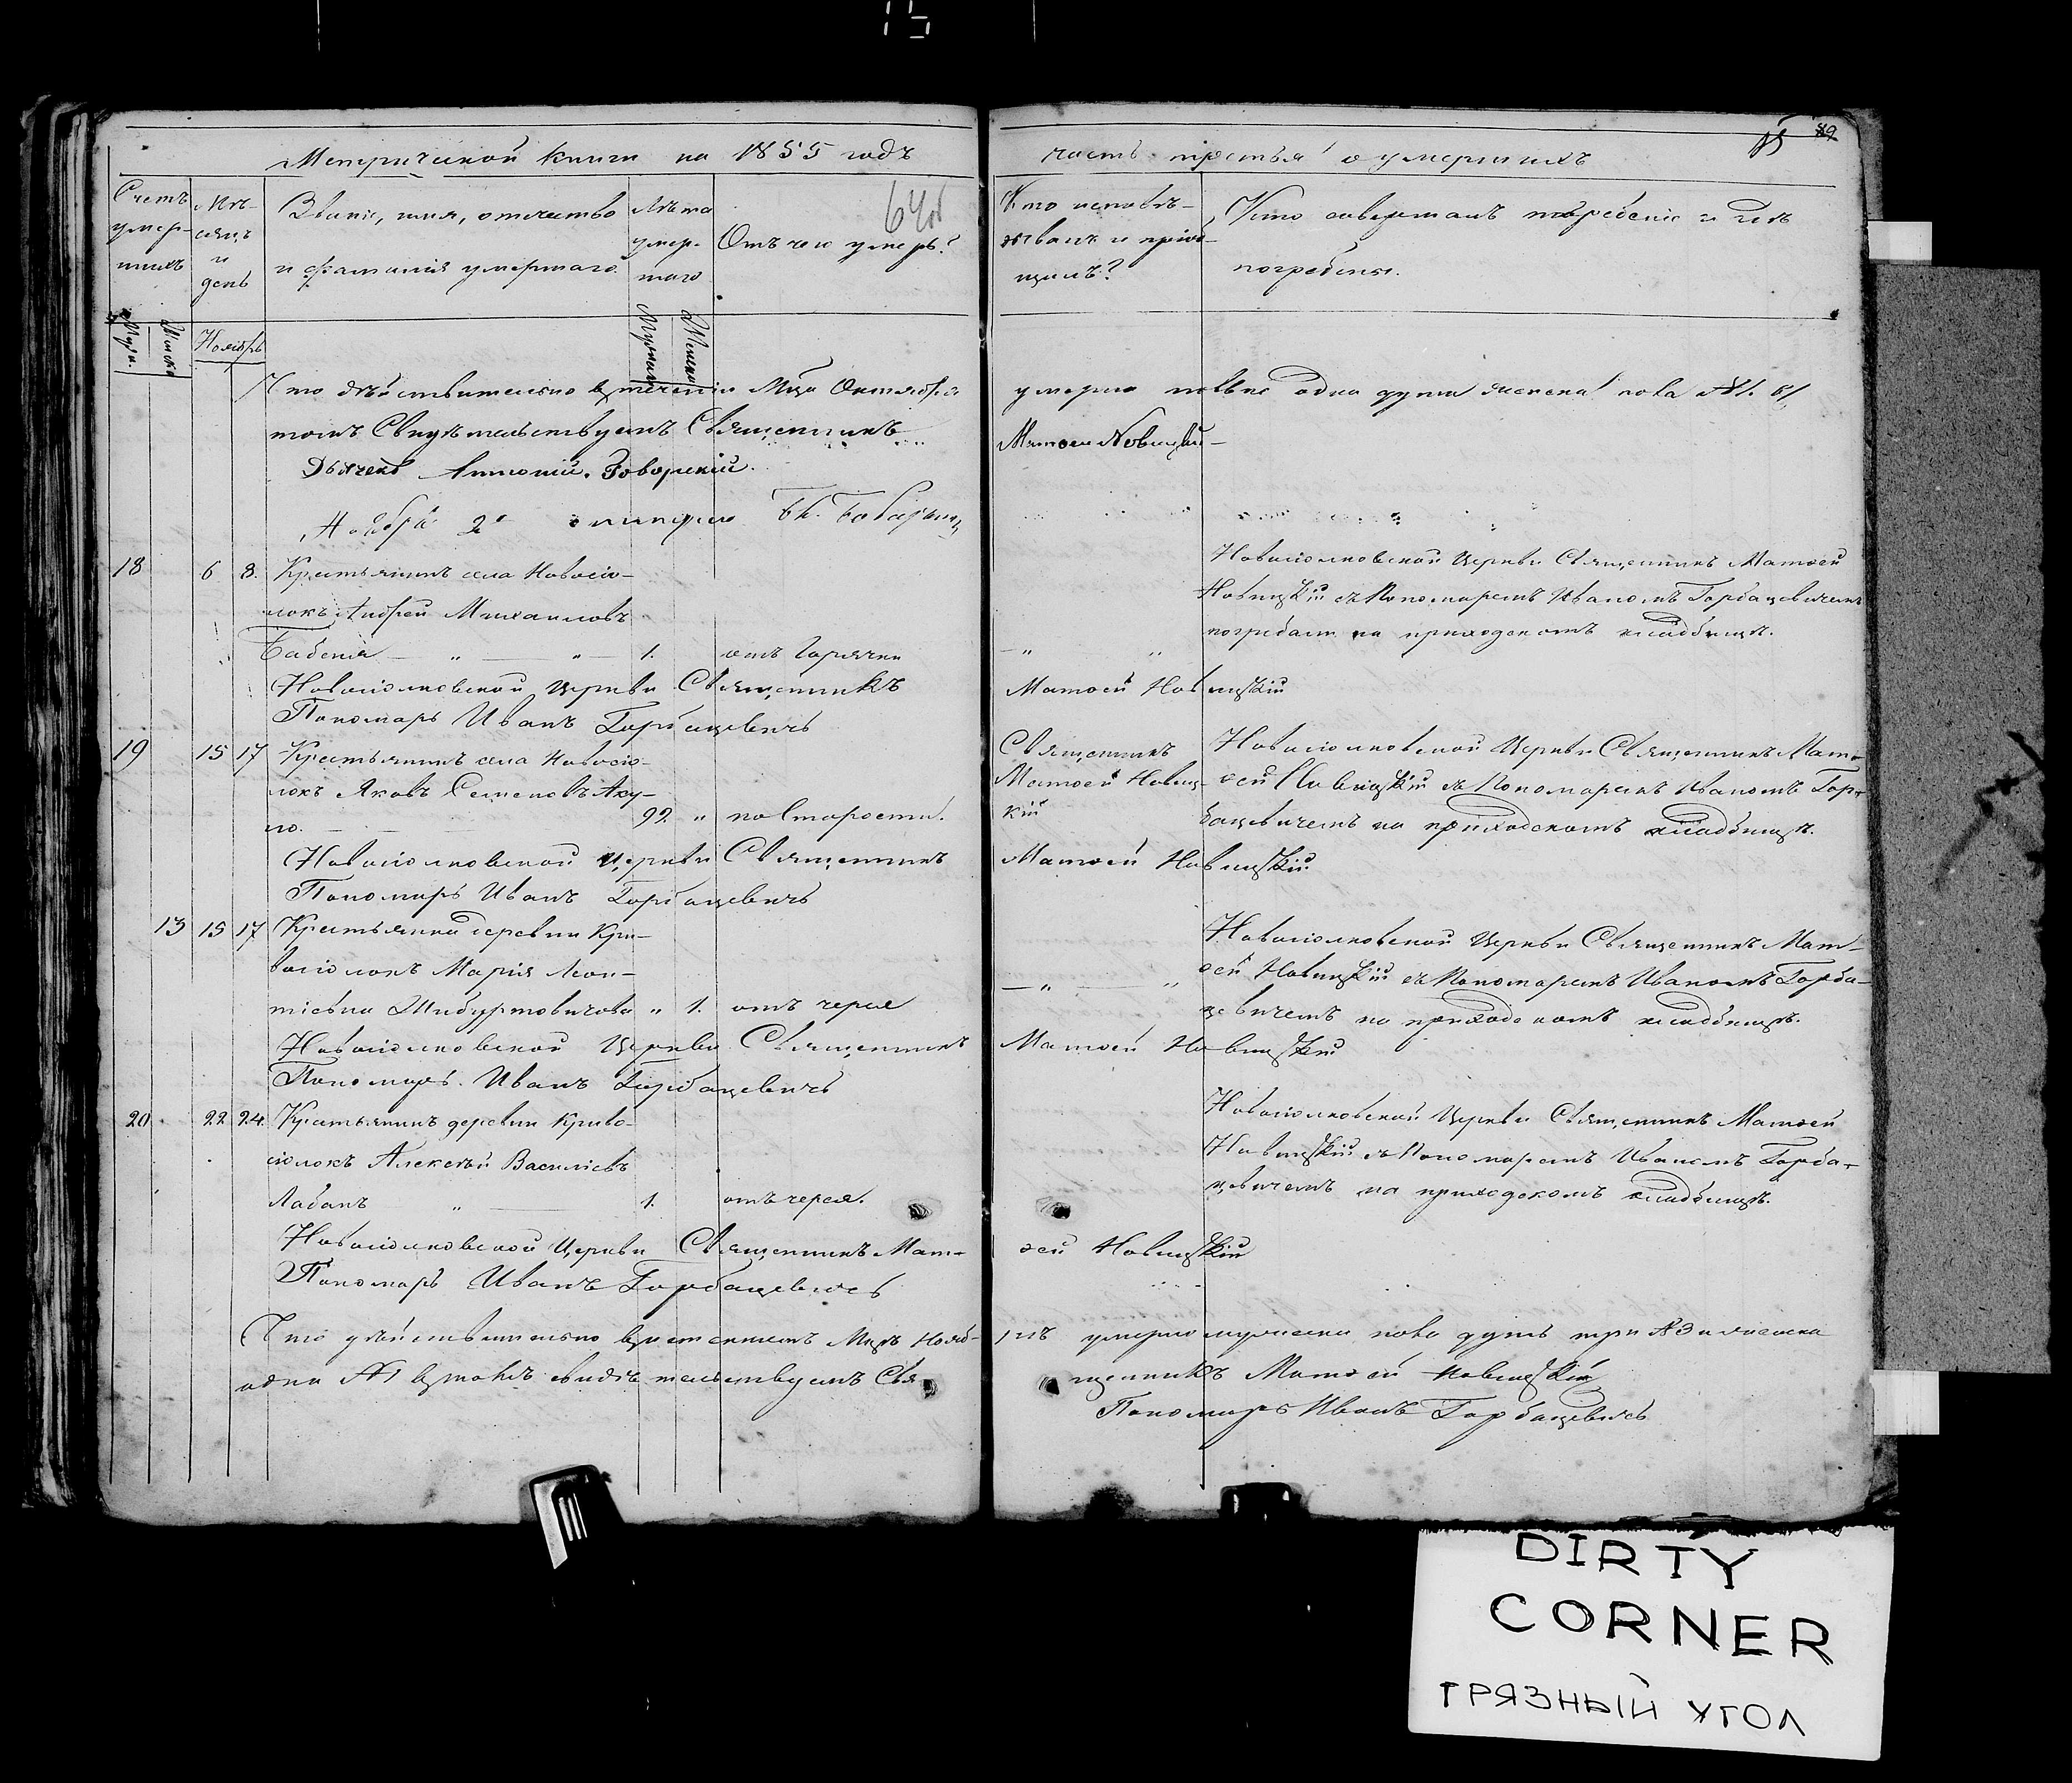 Метрической книги на 1855 годъ
часть третья о умершихъ
89
64об
Счетъ умер-шихъ
Мѣ-сяцъ и день
Званіе, имя, отчество и фамилія умершаго.
Лѣта умер-шаго
Отъ чего умеръ?
Кто исповѣ-дывалъ и пріоб-щалъ?
Кто совершалъ погребеніе и гдѣ погребены.
Ноябрь
Что дѣйствительно втеченіи Мца Октября умерло одна душа женска пола № 1
томъ Свидѣтельствуемъ Священникъ Матѳей Новицкій
Дьячекъ Антоній Говорскій.
Ноября 2
18 6 8. Крестьянинъ села Новосіо-
локъ Андрей Михаиловъ
Бабеня 1. отъ Горячки
Новосіолковской Церкви Священникъ Матѳей
Новицкій съ Пономаремъ Иваномъ Горбацевичемъ
погребали на приходскомъ кладбищѣ.
Новосіолковской Церкви Священникъ Матѳей Новицкій
Пономарь Иванъ Горбацевичъ
19 15 17 Крестьянинъ села Новосіо-
локъ Яковъ Семеновъ Аку-
ло. 92 " по Старости.
Священникъ
Матѳей Новиц-
кій
Новосіолковской Церкви Священникъ Мат-
ѳей Новицкій съ Пономаремъ Иваномъ Гор-
бацевичемъ на приходскомъ кладбищѣ.
Новосіолковской Церкви Священникъ Матѳей Новицкій.
Пономарь Иванъ Горбацевичъ
13 15 17 Крестьянка деревни Кри-
восіолокъ Марія Леон-
тіевна Шибуртовичова " 1. отъ череа
Новосіолковской Церкви Священникъ Мат-
ѳей Новицкій съ Пономаремъ Иваномъ Горба-
цевичемъ на приходскомъ кладбищѣ.
Новосіолковской Церкви Священникъ Матѳей Новицкій
Пономарь Иванъ Горбацевичъ
20 22 24. Крестьянинъ деревни Криво-
сіолокъ Алексѣй Васильевъ
Лабанъ " 1. отъ череа.
Новосіолковской Церкви Священникъ Матѳей
Новицкій съ Пономаремъ Иваномъ Горба-
цевичемъ на приходскомъ кладбищѣ.
Новосіолковской Церкви Священникъ Мат-ѳей Новицкій
Пономарь Иванъ Горбацевичъ
Что дѣйствительно втеченіи Мцѣ Нояб-рѣ умерло мужеска пола душъ три № 3 и женска
одна № 1 втомъ свидѣтельствуемъ Свя-щенникъ Матѳей Новицкій
Пономарь Иванъ Горбацевичъ
DIRTY
CORNER
ГРЯЗНЫЙ УГОЛ